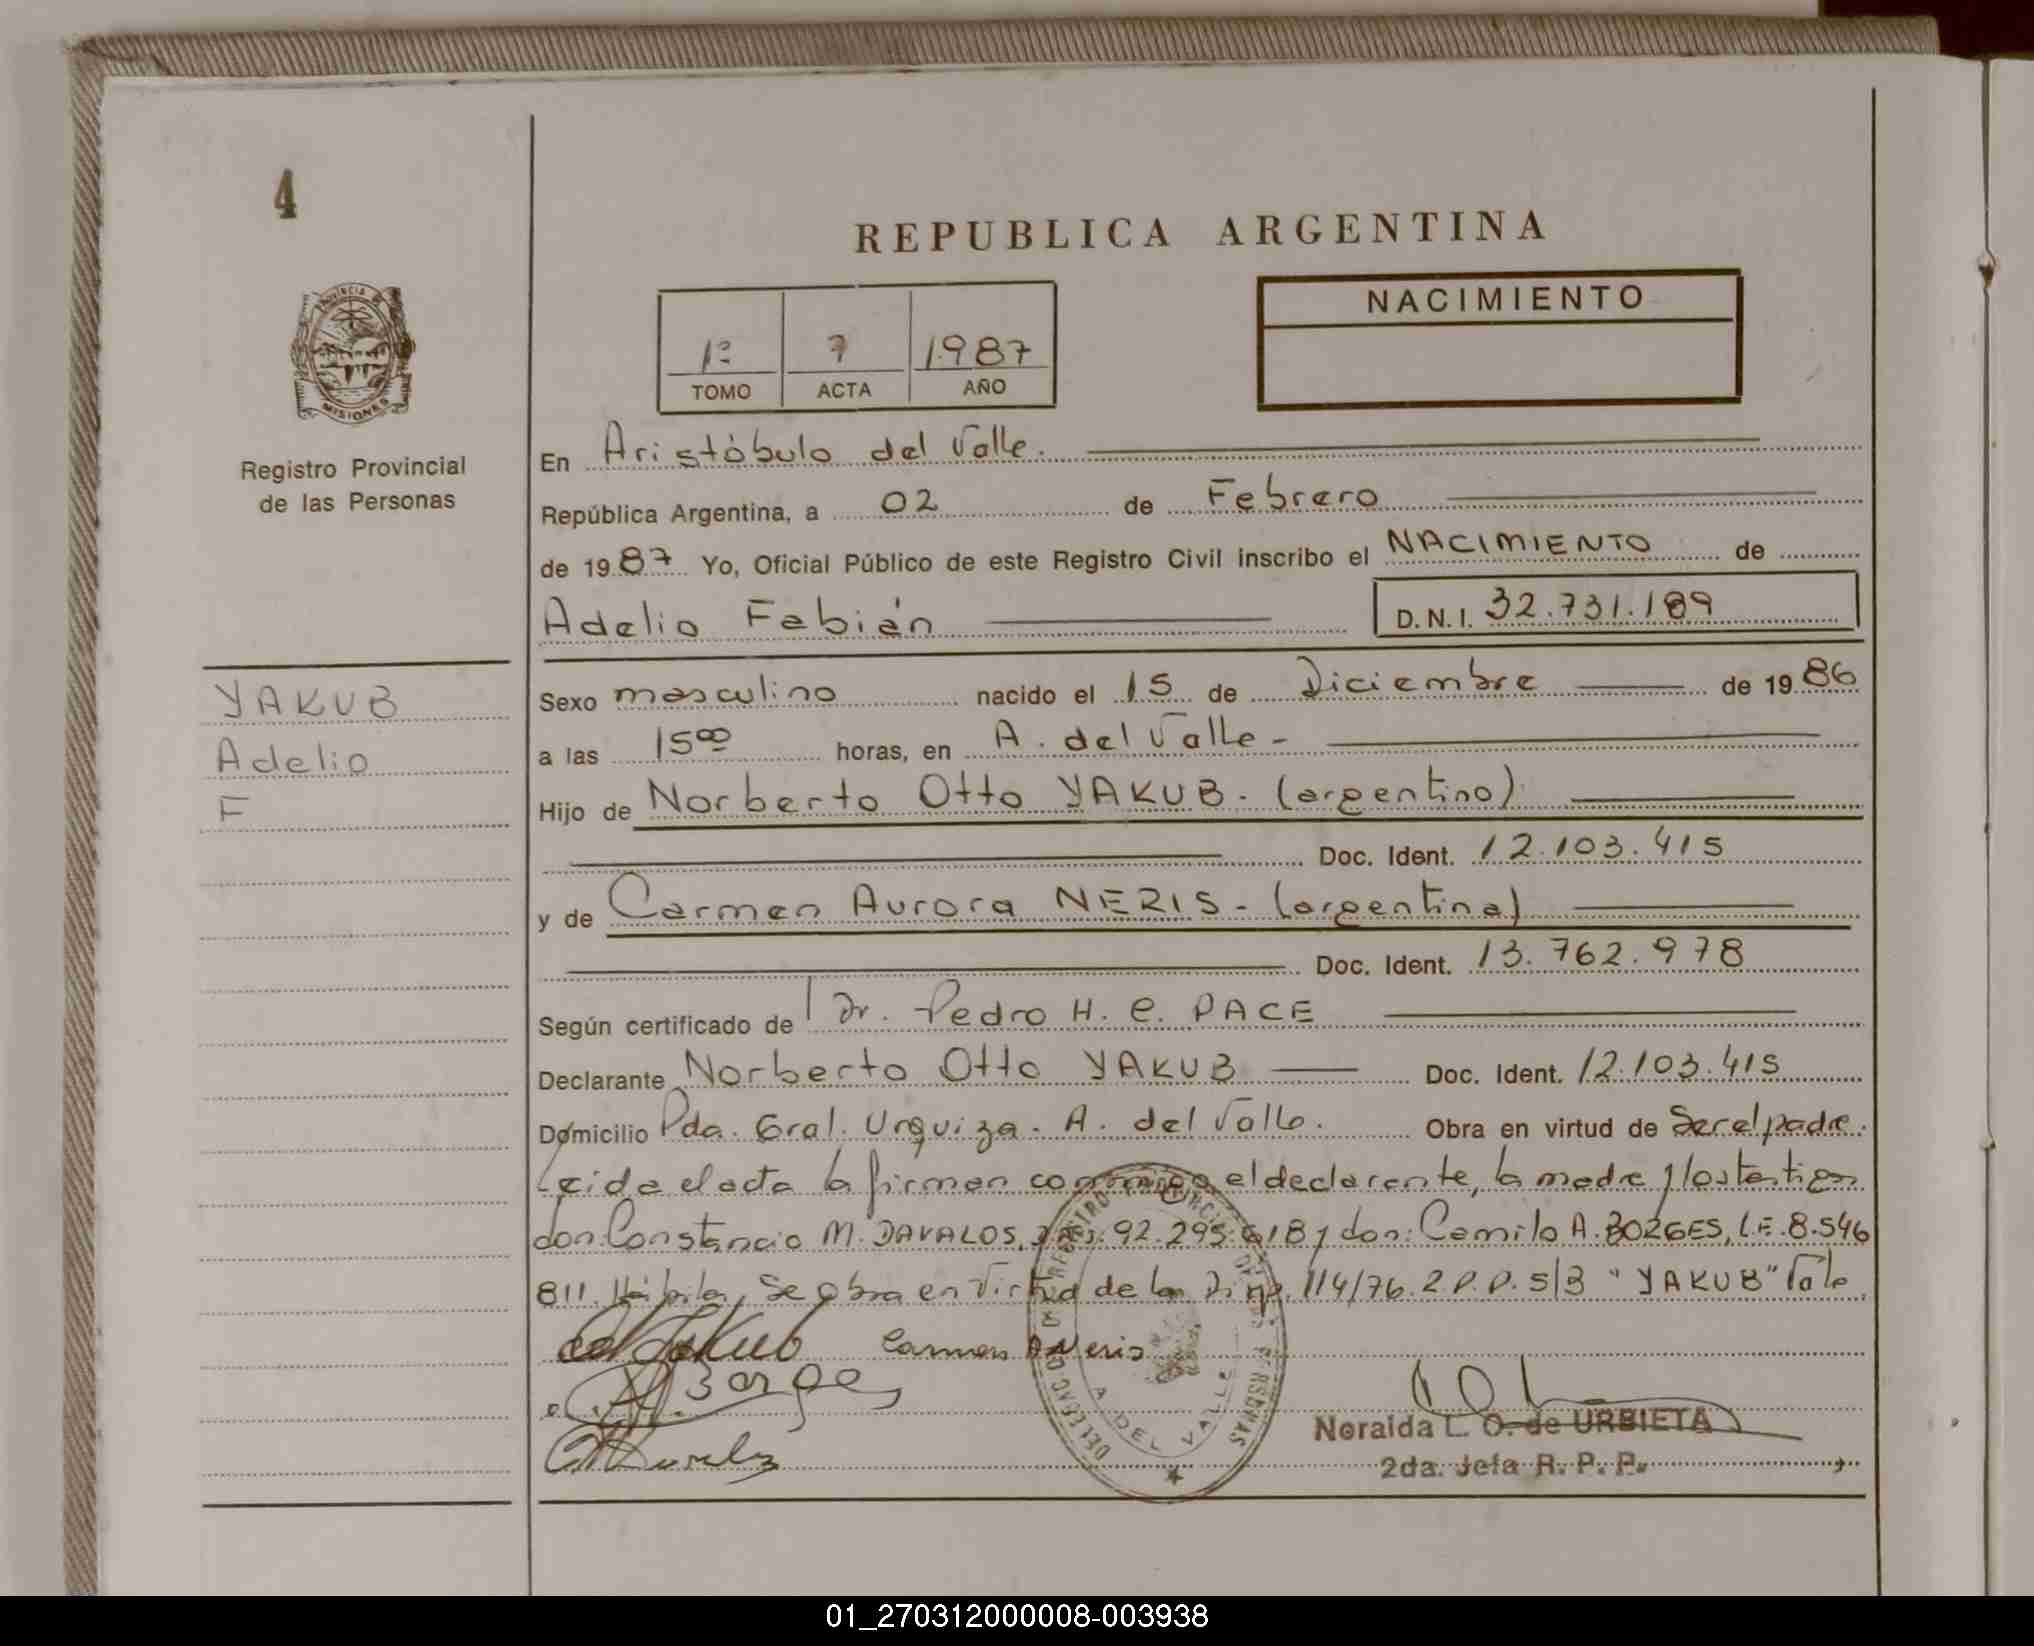 4
REPUBLICA ARGENTINA
PROVINCIA DE
MISIONES
Registro Provincial
de las Personas
1º 7 1987
TOMO ACTA AÑO
NACIMIENTO
En Aristóbulo del Valle.
República Argentina, a 02 de Febrero
de 1987 Yo, Oficial Público de este Registro Civil inscribo el NACIMIENTO de
Adelio Fabián D.N.I. 32.731.189
YAKUB
Adelio
F
Sexo masculino nacido el 15 de Diciembre de 1986
a las 15⁰⁰ horas, en A. del Valle-
Hijo de Norberto Otto YAKUB. (argentino)
Doc. Ident. 12.103.415
y de Carmen Aurora NERIS - (argentina)
Doc. Ident. 13.762.978
Según certificado de Dr. Pedro H. C. PACE
Declarante Norberto Otto YAKUB Doc. Ident. 12.103.415
Domicilio Pda. Gral. Urquiza. A. del Valle. Obra en virtud de Ser el padre.
Leida el acta la firman conmigo el declarante, la madre y los testigos
don: Constancio M. DAVALOS, 92.295.618 y don: Camilo A. BORGES, L.E. 8.546
811. Hábiles, Se obra en Virtud de la Disp. 114/76. R.P.P. S/B "YAKUB" Vale
Yakub Carmen A Neris
Borge
Noralda L. O. de URBIETA
2da. Jefa R. P. P.
A DEL VALLE
01_270312000008-003938